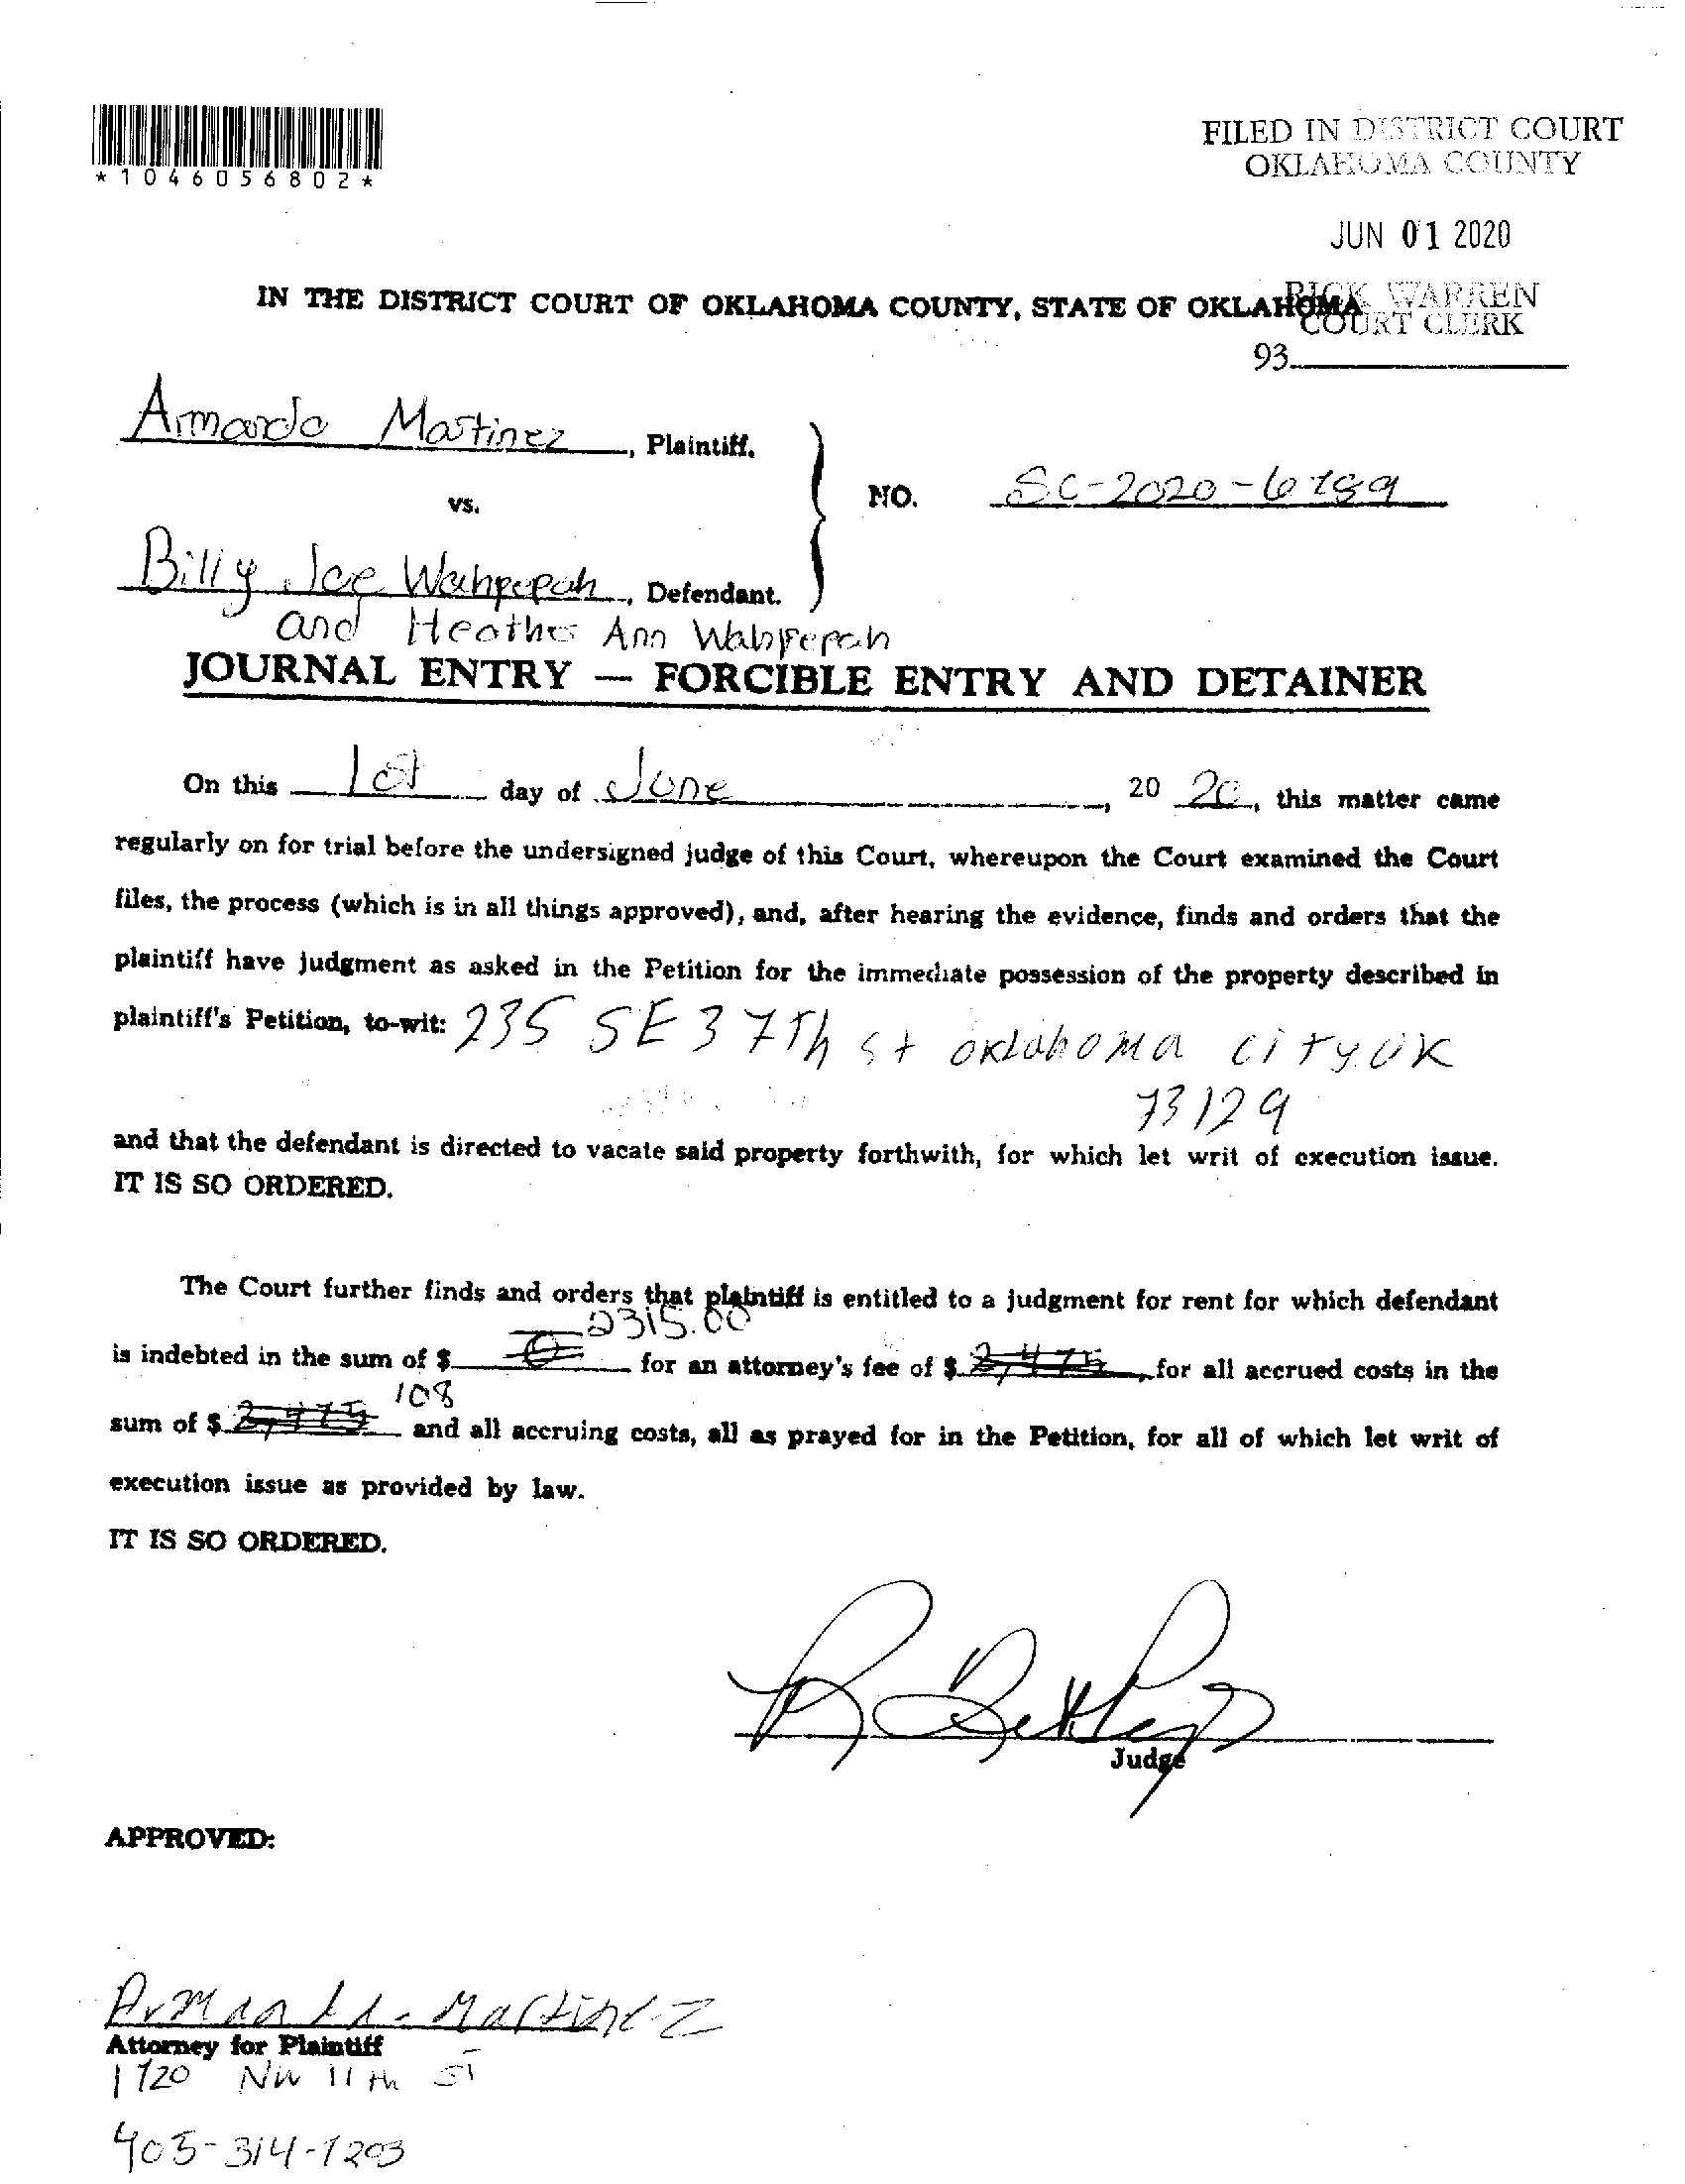 *1046056802*
FILED IN DISTRICT COURT
OKLAHOMA COUNTY
JUN 01 2020
RICK WARREN
COURT CLERK
IN THE DISTRICT COURT OF OKLAHOMA COUNTY, STATE OF OKLAHOMA
93
Armando Martinez, Plaintiff.
vs.
NO. SC-2020-6789
Billy Joe Wahpepah, Defendant.
and Heather Ann Wahpepah
JOURNAL ENTRY — FORCIBLE ENTRY AND DETAINER
On this 1st day of June, 20 20, this matter came
regularly on for trial before the undersigned judge of this Court, whereupon the Court examined the Court
files, the process (which is in all things approved), and, after hearing the evidence, finds and orders that the
plaintiff have judgment as asked in the Petition for the immediate possession of the property described in
plaintiff's Petition, to-wit: 235 SE 37Th st oklahoma city OK
73129
and that the defendant is directed to vacate said property forthwith, for which let writ of execution issue.
IT IS SO ORDERED.
The Court further finds and orders that plaintiff is entitled to a judgment for rent for which defendant
2315.00
is indebted in the sum of $ 0 for an attorney's fee of $ 2,475, for all accrued costs in the
108
sum of $ 2,475 and all accruing costs, all as prayed for in the Petition, for all of which let writ of
execution issue as provided by law.
IT IS SO ORDERED.
Judge
APPROVED:
Armando Martinez
Attorney for Plaintiff
1720 NW 11th ST
405-314-7203